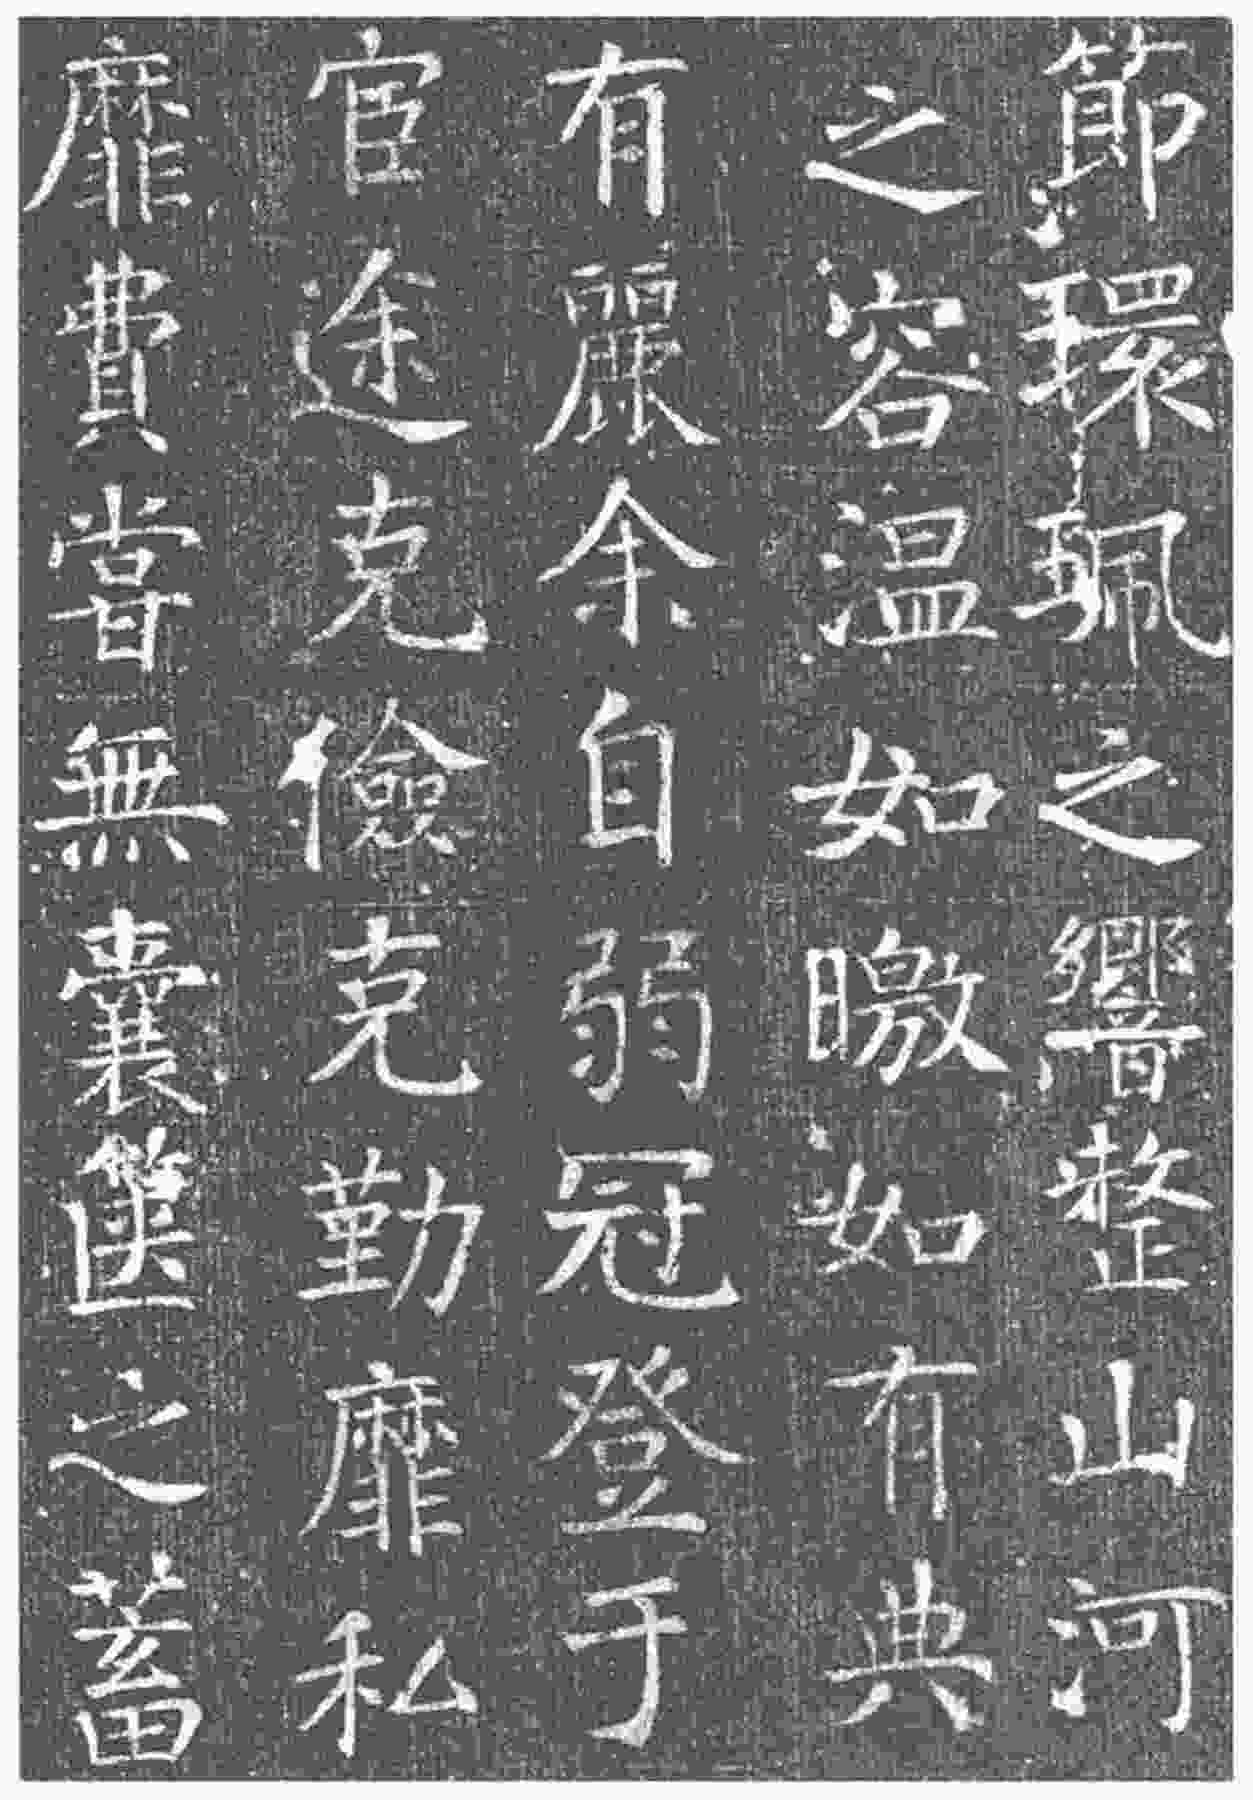 節環珮之響整山河
之容溫如曒如有典
有麗余自弱冠登于
宦途克儉克勤靡私
靡費嘗無囊篋之蓄